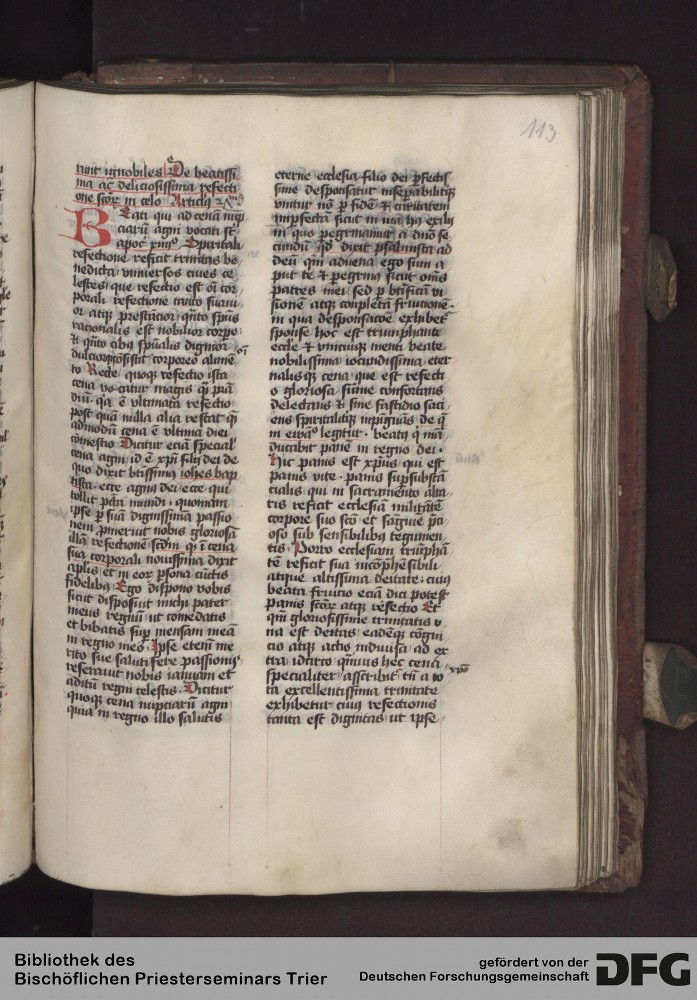 113
runt ignobiles De beatissi
ma ac deliciosissima refecti
one scōꝝ in celo Articłs
Beati qui ad cenā nup
ciarū agni vocati st̄
apoc xixº Spūitali
refectione reficit trinitas be
nedicta vniuersos ciues ce
lestes que refectio est oī cor
porali refectione tanto suaui
or atqꝫ prestancior qn̄to spūs
racionalis est nobilior corpe
⁊ qn̄to cibus spūalis dignior
dulciorqꝫ existit corporeo alimē
to Recte quoqꝫ refectio ista
cena vocatur magis qͣꝫ prā
diū qꝛ ē vltimata refectio
post quā nulla alia restat qͣꝫ
admodū cena ē vltima diei
comestio Dicitur eciā special
cena agni id ē xp̄i filij dei de
quo dixit btīssimus ioħes bap
tista ecce agnus dei ecce qui
tollit pctā mundi quoniam
ipse ꝑ suā dignissimā passio
nem ꝓmeruit nobis gloriosā
illā refectionē scdm̄ qꝫ ī cena
sua corporali nouissima dixit
aplīs et in eoꝝ ꝑsona cūctis
fidelibꝫ Ego dispono vobis
sicut disposuit michi pater
meus regnū ut comedatis
et bibatis suꝑ mensam meā
in regno meo Ipse etenī me
rito sue salutifere passionis
reserauit nobis ianuam et
aditū regni celestis Dicitur
quoqꝫ cena nupciarū agni
quia in regno illo salutis
eterne ecclesia filio dei ꝑfectis
sime desponsatur inseꝑabiliterqꝫ
vnitur nō ꝑ fidē ⁊ caritatem
imꝑfectā sicut in uia hꝰ exilij
in quo peregrinamur a dn̄o se
cundū id dixit psalmista ad
deū qm̄ aduena ego sum a
put te ⁊ ꝑegrinus sicut om̄s
patres mei sed ꝑ btīficā vi
sionē atqꝫ completā fruicionē
in qua desponsacōe exhibet̄
sponse hoc est triumphante
eccłe ⁊ vnicuiqꝫ menti beate
nobilissima iocundissima eter
nalisqꝫ cena que est refecti
o gloriosa sūme confortans
delectans ⁊ sine fastidio saci
ens spiritalitqꝫ inpiguās de qͣ
in ewāº legitur beatꝰ qͥ mā
ducabit panē in regno dei
Hic panis est xp̄ius qui est
panis vite panis suꝑsubstā
cialis qui in sacramēto alta
ris reficit ecclesiā militātē
corpore suo scō et sāgīe p̄ci
oso sub sensibilibꝫ tegumen
tis Porro ecclesiam triūphā
tē reficit sua incōp̄hēsibili
atque altissima deitate cuius
beata fruicio eciā dici potest
panis scōꝝ atqꝫ refectio Et
qm̄ gloriosissime trinitatis v
na est deitas eadēqꝫ cogni
cio atqꝫ actus indiuisa ad ex
tra idcirco quīuis hec cena
specialiter asscribitꝛ xp̄o tn̄ a to
ta excellentissima trinitate
exhibetur cuius refectionis
tanta est dignitas ut ipse
Bibliothek des
Bischöflichen Priesterseminars Trier
gefördert von der
Deutschen Forschungsgemeinschaft
DFG